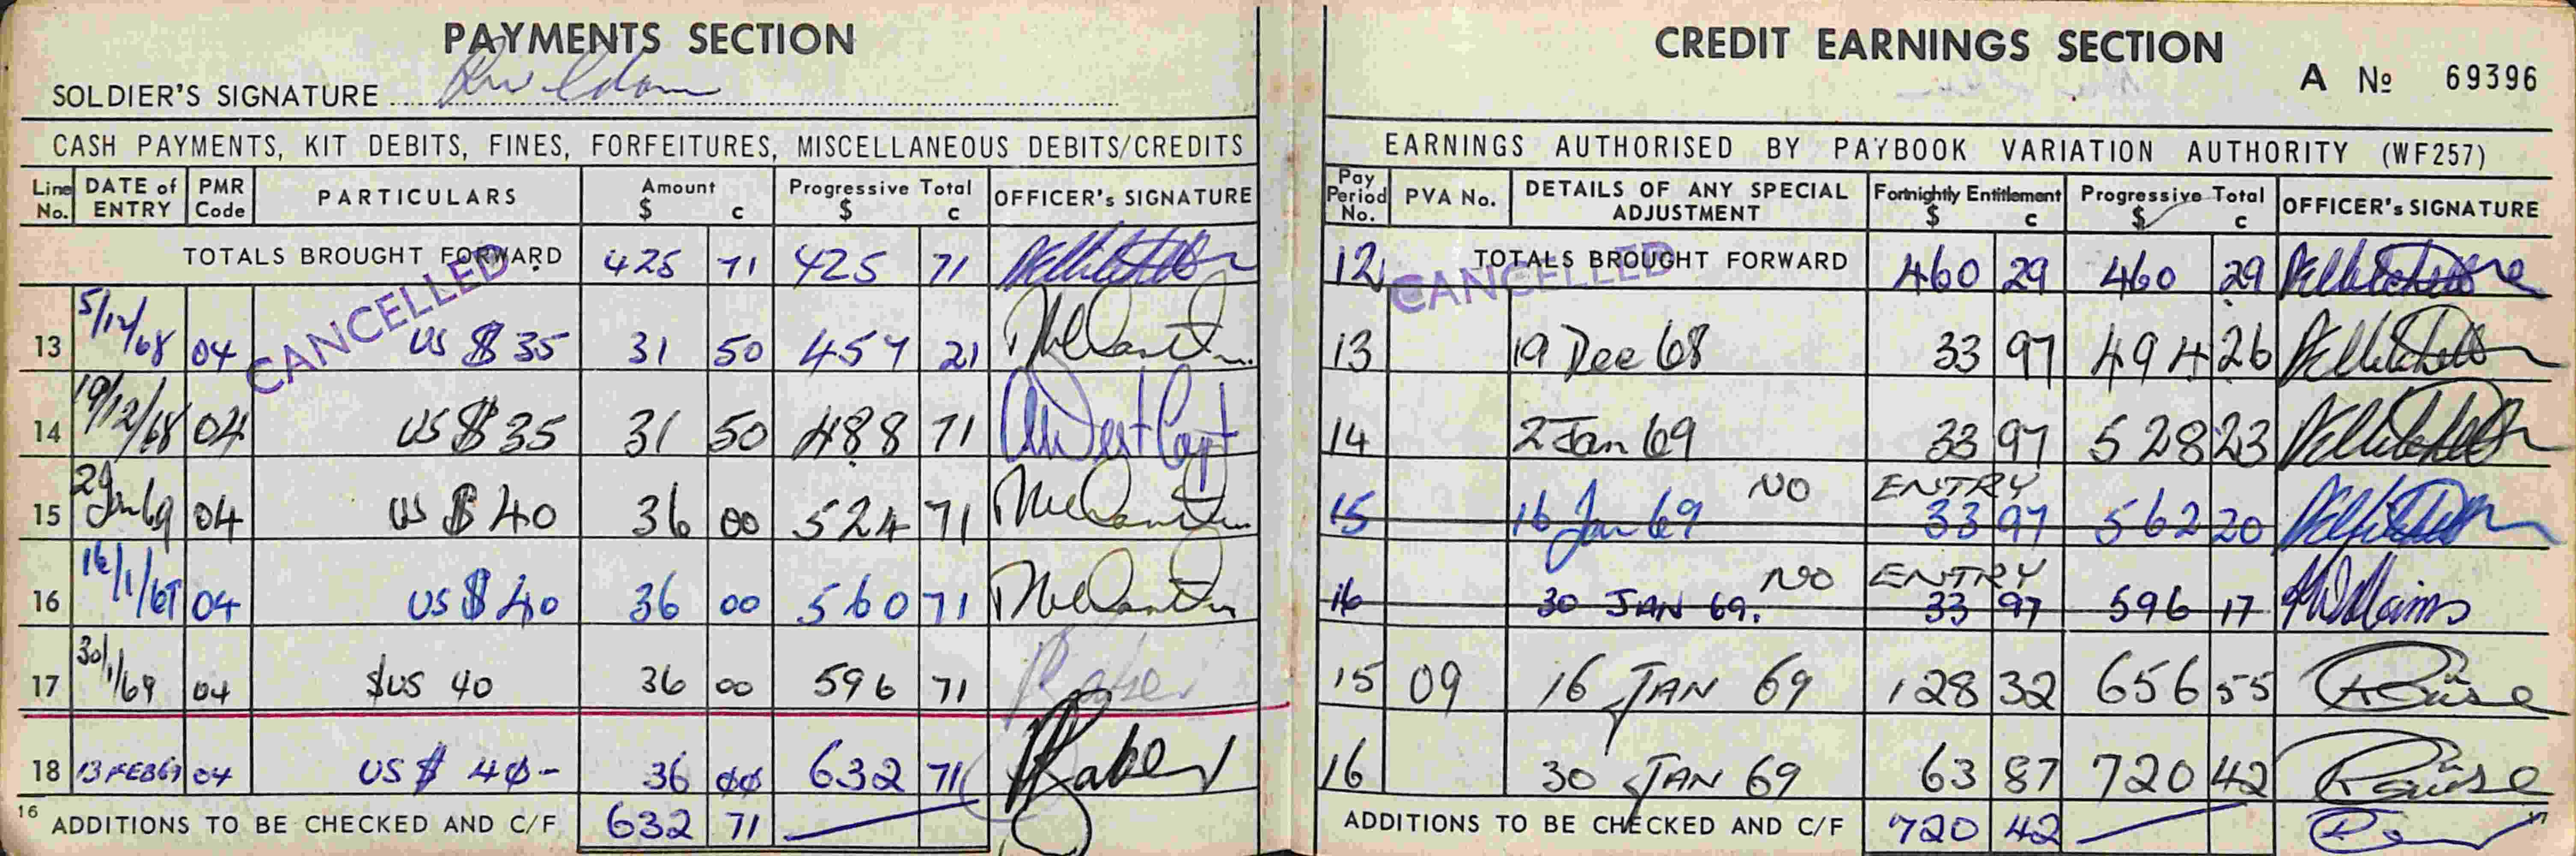 PAYMENTS SECTION
SOLDIER'S SIGNATURE
CASH PAYMENTS, KIT DEBITS, FINES, FORFEITURES, MISCELLANEOUS DEBITS/CREDITS
Line No. DATE of ENTRY PMR Code PARTICULARS Amount $ c Progressive Total $ c OFFICER's SIGNATURE
TOTALS BROUGHT FORWARD 425 71 425 71
CANCELLED
13 5/12/68 04 US $ 35 31 50 457 21
14 19/12/68 04 US $ 35 31 50 488 71 West Capt
15 2 Jan 69 04 US $ 40 36 00 524 71
16 16/1/69 04 US $ 40 36 00 560 71
17 30/1/69 04 $US 40 36 00 596 71 Baker
18 13 FEB 69 04 US $ 40- 36 00 632 71 Baker
16 ADDITIONS TO BE CHECKED AND C/F 632 71
CREDIT EARNINGS SECTION
A No 69396
EARNINGS AUTHORISED BY PAYBOOK VARIATION AUTHORITY (WF257)
Pay Period No. PVA No. DETAILS OF ANY SPECIAL ADJUSTMENT Fortnightly Entitlement $ c Progressive Total $ c OFFICER's SIGNATURE
12 TOTALS BROUGHT FORWARD 460 29 460 29
CANCELLED
13 19 Dec 68 33 97 494 26
14 2 Jan 69 33 97 528 23
NO ENTRY
15 16 Jan 69 33 97 562 20
NO ENTRY
16 30 JAN 69. 33 97 596 17 Williams
15 09 16 JAN 69 128 32 656 55
16 30 JAN 69 63 87 720 42
ADDITIONS TO BE CHECKED AND C/F 720 42